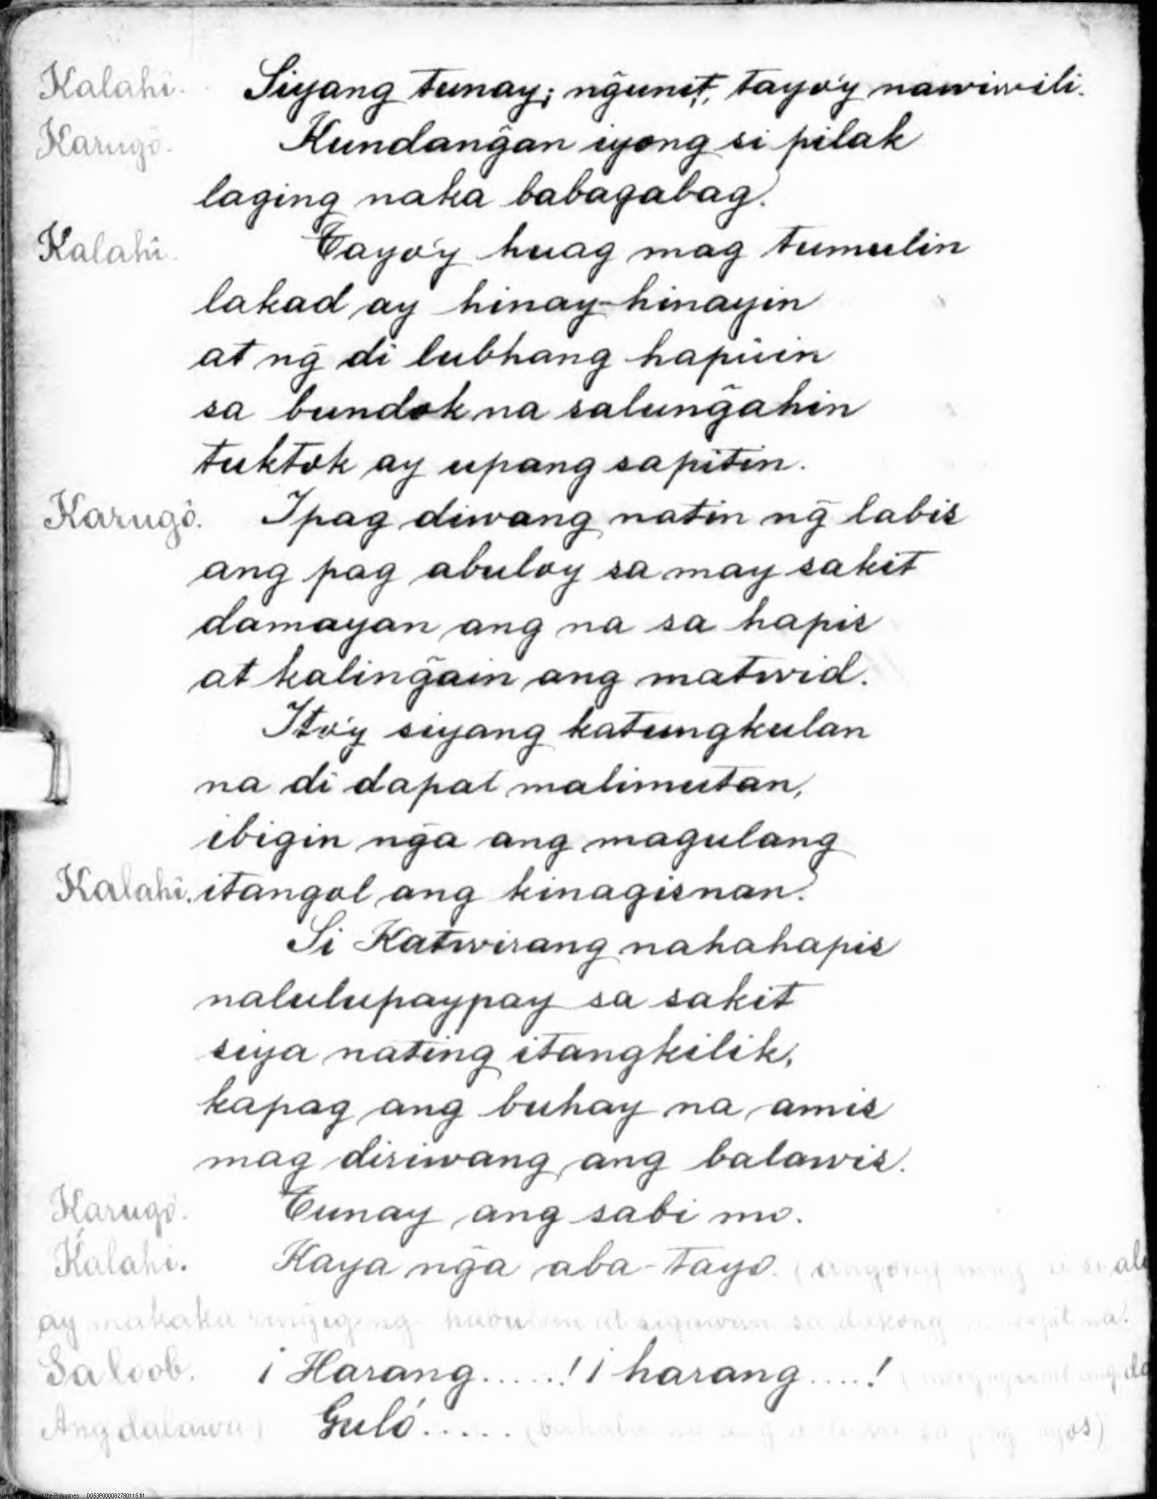 Kalahi. Siyang tunay; ng̃unit, tayo'y nawiwili.
Karugô. Kundang̃an iyong si pilak
laging naka babagabag.
Kalahi. Tayo'y huag mag tumulin
lakad ay hinay-hinayin
at ng̃ di lubhang hapúin
sa bundok na salung̃ahin
tuktok ay upang sapitin.
Karugô. Ipag diwang natin ng̃ labis
ang pag abuloy sa may sakit
damayan ang na sa hapis
at kaling̃ain ang matwid.
Ito'y siyang katungkulan
na di dapat malimutan,
ibigin ng̃a ang magulang
Kalahi. itangol ang kinagisnan.
Si Katwirang nahahapis
nalulupaypay sa sakit
siya nating itangkilik,
kapag ang buhay na amis
mag diriwang ang balawis.
Karugô. Tunay ang sabi mo.
Kalahi. Kaya ng̃a aba-tayo.
ay makaka
Sa loob. ¡Harang.....! ¡harang....!
Ang dalawa) Guló.....